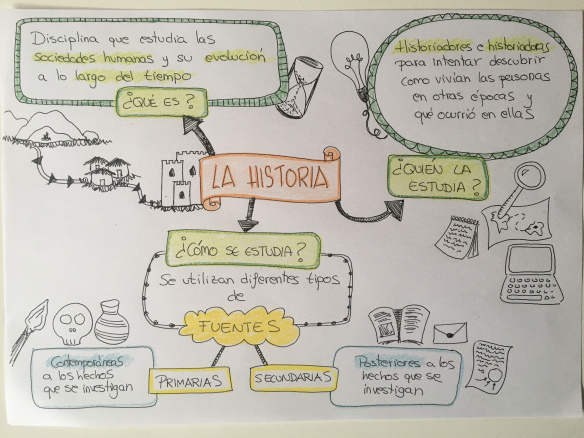 Disciplina que estudia las
sociedades humanas y su evolución
a lo largo del tiempo
¿QUÉ ES?
Historiadores e historiadoras
para intentar descubrir
como vivían las personas
en otras épocas y
qué ocurrió en ellas
LA HISTORIA
¿QUIÉN LA
ESTUDIA?
¿CÓMO SE ESTUDIA?
Se utilizan diferentes tipos
de
FUENTES
PRIMARIAS
SECUNDARIAS
Contemporáneas
a los hechos
que se investigan
Posteriores a los
hechos que se
investigan